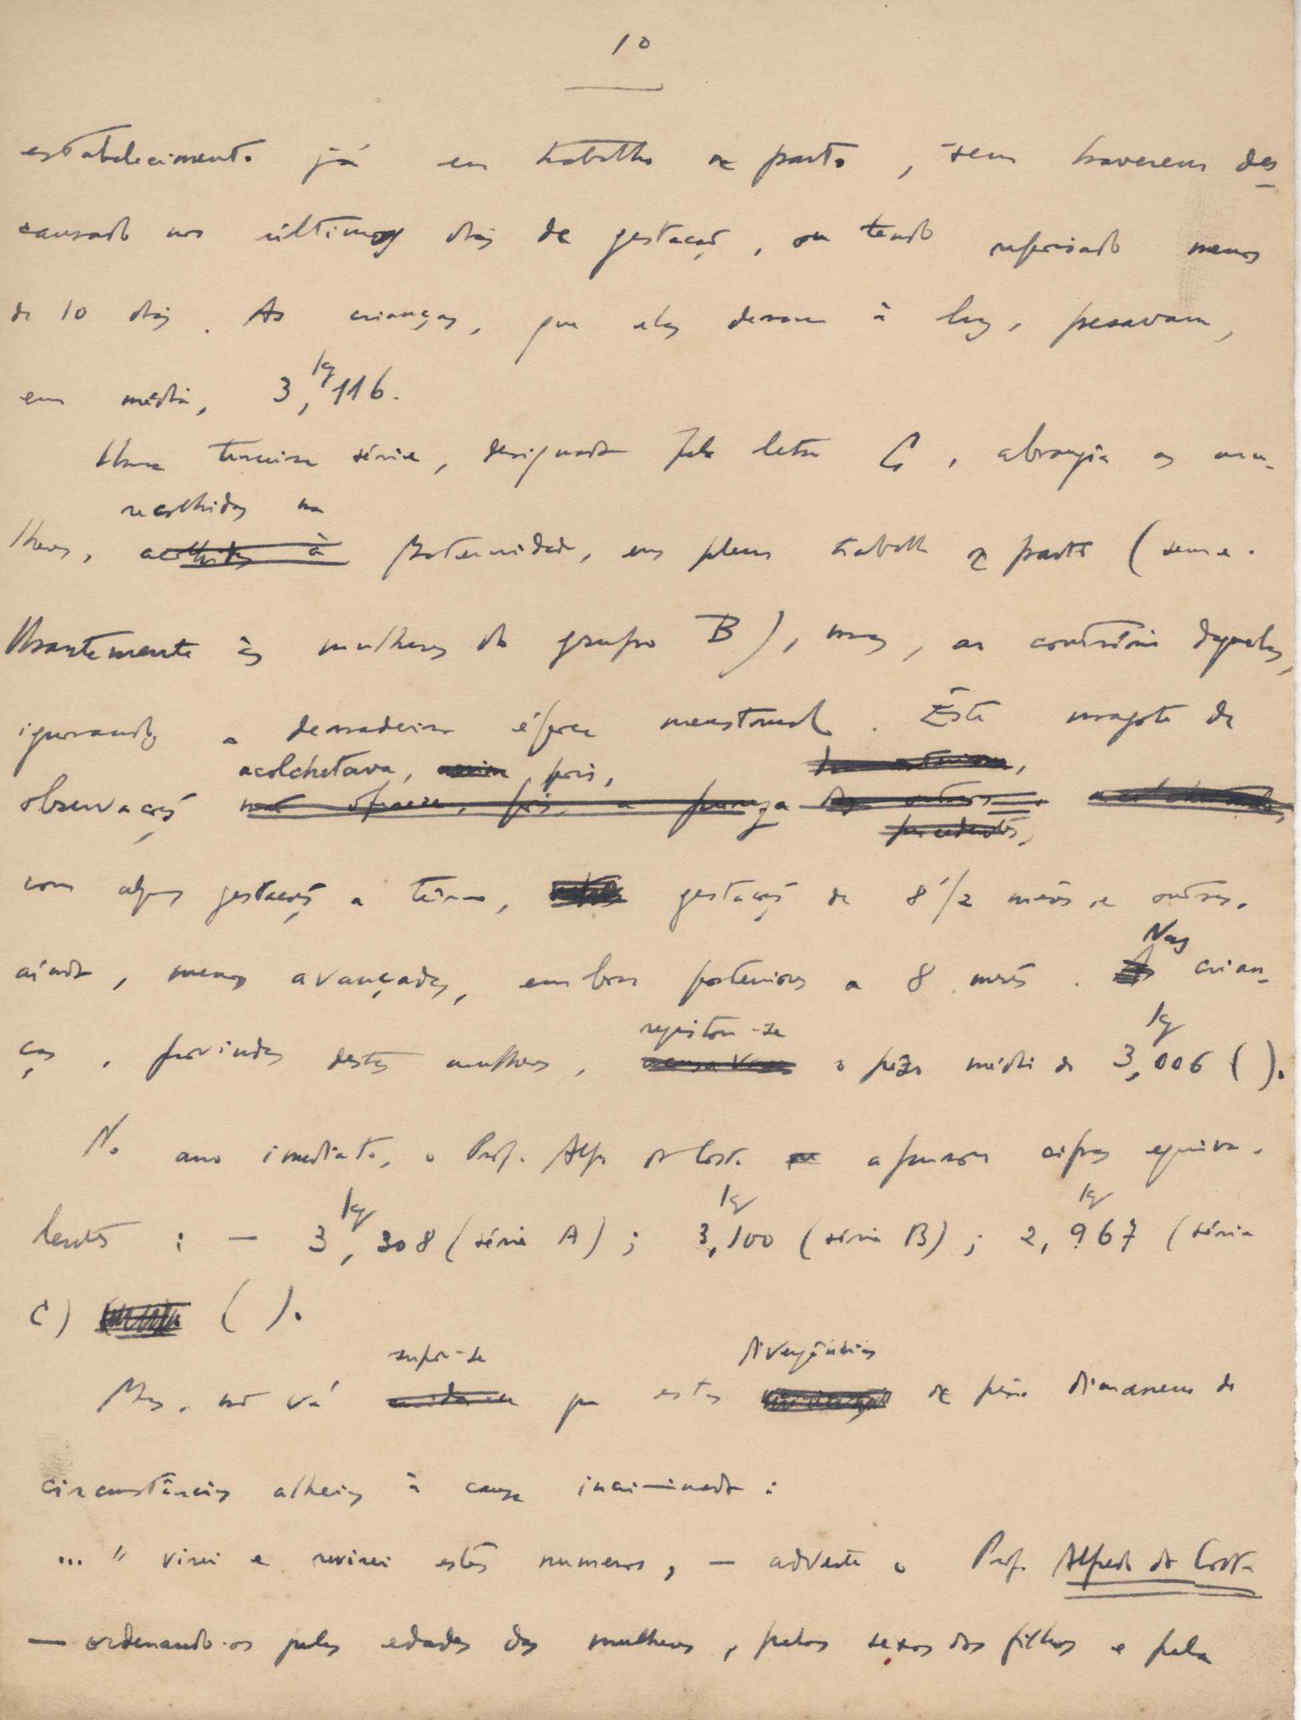 10
estabelecimento já em trabalho de parto, sem haverem des-
cansado nos últimos dias de gestação, ou tendo repousado menos
de 10 dias. As crianças, que elas deram à luz, pesavam,
em média, 3,kg116.
Uma terceira série, designada pela letra C, abrangia as mu-
recolhidas na
lheres, acolhidas à Maternidade, em pleno trabalho de parto (seme-
lhantemente às mulheres do grupo B), mas, ao contrário daquelas,
ignorando a derradeira época menstrual. Êste magote de
acolchetava, pois,
observações não oferece, pois, a pureza
precedentes,
com algumas gestações a têrmo, gestações de 8 1/2 mêses e outras,
ainda, menos avançadas, embora posteriores a 8 mêses. Nas crian-
registou-se
ças, provindas destas mulheres, acusavam o pêso médio de 3,kg006 ( ).
No ano imediato, o Prof. Alfr. da Costa apurou cifras equiva-
lentes: — 3,kg308 (série A); 3,kg100 (série B); 2,kg967 (série
C) ( ).
supôr-se divergências
Mas, não vá que estas de pêso dimanem de
circunstâncias alheias à causa incriminada:
... " virei e revirei estes numeros, — adverte o Prof. Alfredo da Costa
— ordenando-os pelas edades das mulheres, pelos sexos dos filhos e pela